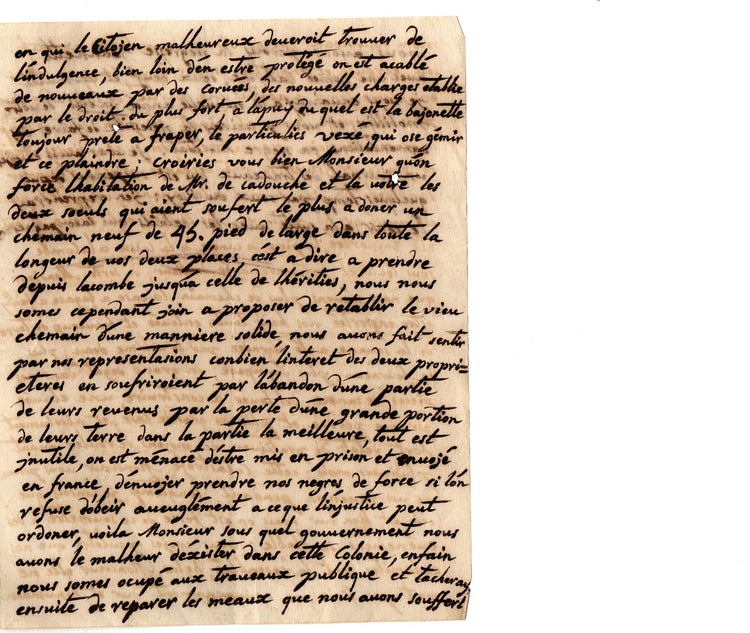 en qui le Citojen malheureux deveroit trouver de
l'indulgence, bien loin d'én estre protégé on est acablé
de nouveaux par des corvées, des nouvelles charges etablie
par le droit du plus fort, a l'apuy du quel est la bajonette
toujour prete a fraper, le particulies vexé, qui ose gémir
et ce plaindre; croiries vous bien Monsieur qu'ón
force l'habitation de Mr. de cadouche et la votre les
deux soeuls qui aient soufert le plus a doner un
chemain neuf de 45. pied de large dans toute la
longeur de vos deux places, cést a dire a prendre
depuis lacombe jusqu'a celle de lhérities, nous nous
somes cependant join a proposer de retablir le vieu
chemain d'une manniere solide, nous avons fait sentir
par nos representasions conbien linteret des deux propri=
eteres en soufriroient par l'abandon d'une partie
de leurs revenus par la perte d'une grande portion
de leurs terre dans la partie la meilleure, tout est
jnutile, on est ménacé d'éstre mis en prison et envojé
en france, d'énvojer prendre nos negres de force si l'ón
refuse d'obeir aveuglément a ce que l'injustice peut
ordoner, voila Monsieur sous quel gouvernement nous
avons le malheur d'éxister dans cétte Colonie, enfain
nous somes ocupé aux traveaux publique et tacheray
ensuite de reparer les meaux que nous avons souffert